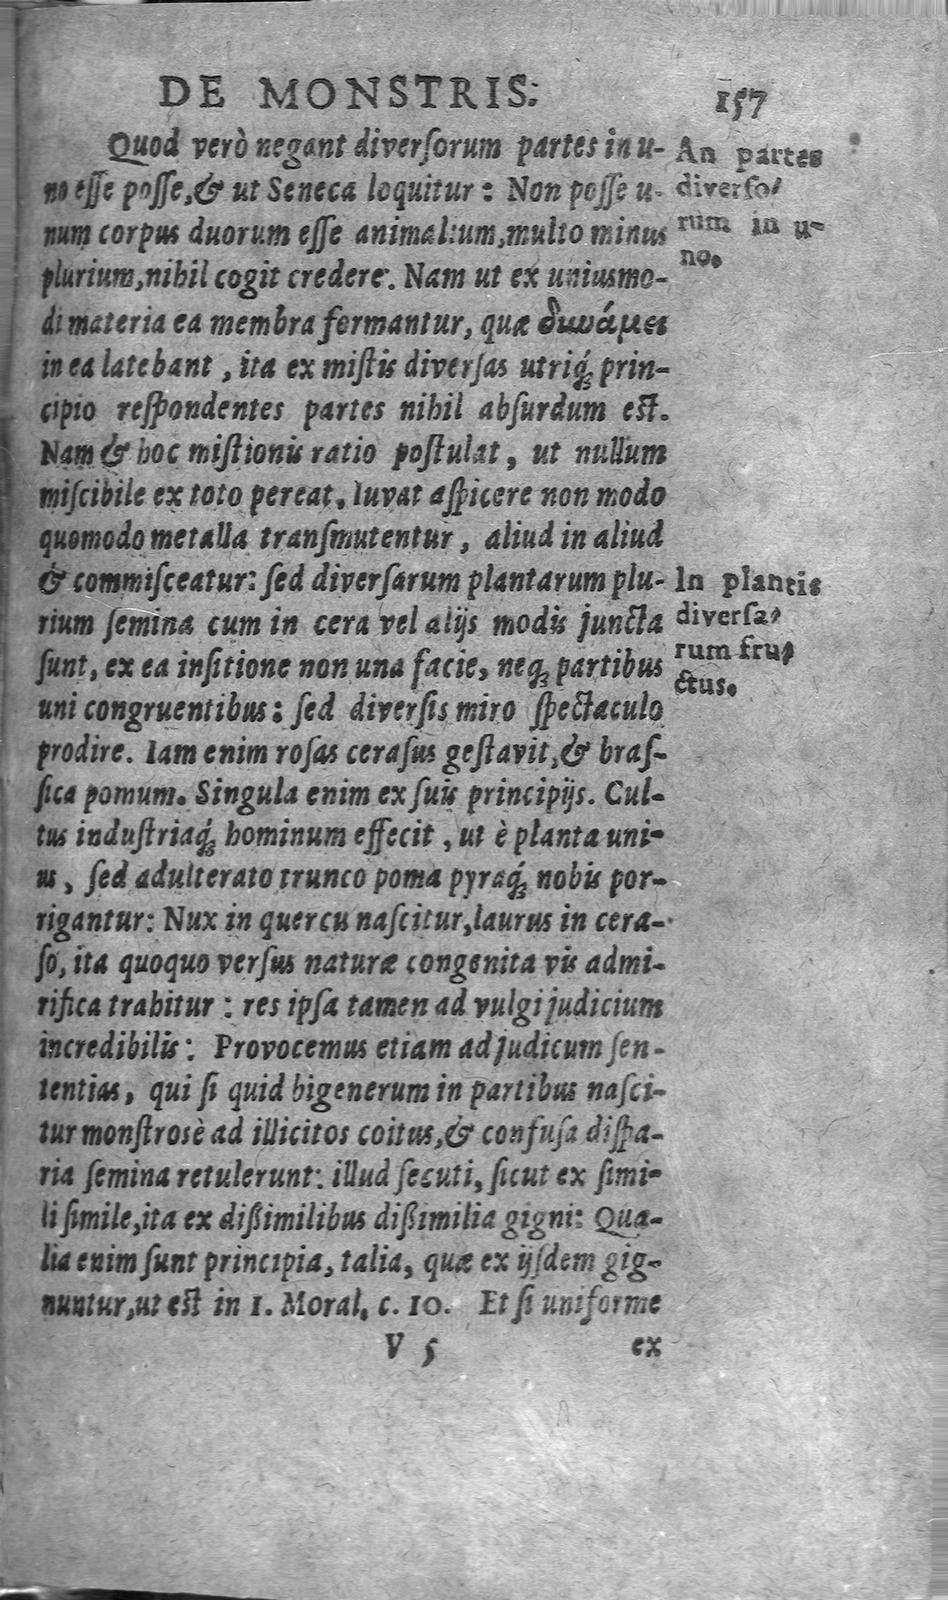 DE MONSTRIS. 157
Quod verò negant diverſorum partes in u-
no eſſe poſſe, & ut Seneca loquitur: Non poſſe u-
num corpus duorum eſſe animalium, multo minus
plurium, nihil cogit credere. Nam ut ex uniusmo-
di materia ea membra formantur, quæ δυνάμει
in ea latebant, ita ex miſtis diverſas utriq́; prin-
cipio reſpondentes partes nihil abſurdum eſt.
Nam & hoc miſtionis ratio poſtulat, ut nullum
miſcibile ex toto pereat. Iuvat aſpicere non modo
quomodo metalla tranſmutentur, aliud in aliud
& commiſceatur: ſed diverſarum plantarum plu-
rium ſemina cum in cera vel alijs modis juncta
ſunt, ex ea inſitione non una facie, neq; partibus
uni congruentibus: ſed diverſis miro ſpectaculo
prodire. Iam enim roſas ceraſus geſtavit, & braſ-
ſica pomum. Singula enim ex ſuis principijs. Cul-
tus induſtriaq́; hominum effecit, ut è planta uni-
us, ſed adulterato trunco poma pyraq́; nobis por-
rigantur: Nux in quercu naſcitur, laurus in cera-
ſo, ita quoquo verſus naturæ congenita vis admi-
rifica trahitur: res ipſa tamen ad vulgi judicium
incredibilis: Provocemus etiam ad judicum ſen-
tentias, qui ſi quid bigenerum in partibus naſci-
tur monſtrosè ad illicitos coitus, & confuſa diſpa-
ria ſemina retulerunt: illud ſecuti, ſicut ex ſimi-
li ſimile, ita ex dißimilibus dißimilia gigni: Qua-
lia enim ſunt principia, talia, quæ ex ijſdem gig-
nuntur, ut eſt in 1. Moral. c. 10. Et ſi uniforme
V 5 ex
An partes
diverſo-
rum in u-
no.
In plantis
diverſa-
rum fru-
ctus.